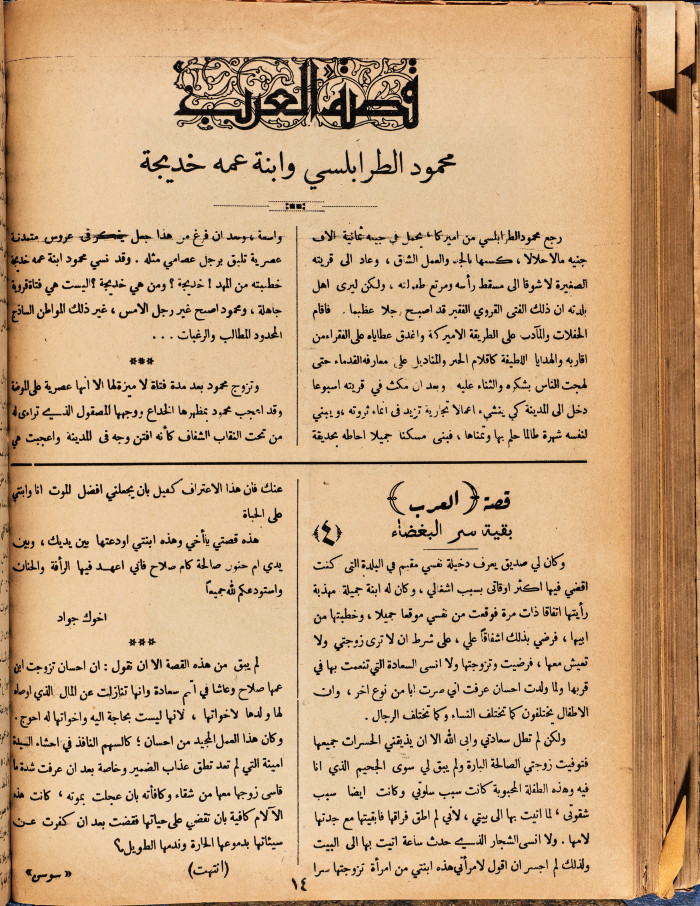 قصة العرب
محمود الطرابلسي وابنة عمه خديجة
رجع محمود الطرابلسي من اميركا، يحمل في جيبه ثمانية الاف
جنيه مالاحلالا، كسبها بالجد والعمل الشاق، وعاد الى قريته
الصغيرة لا شوقا الى مسقط رأسه ومرتع طفولته، ولكن ليرى اهل
بلدته ان ذلك الفتى القروي الفقير قد اصبح رجلا عظيما. فاقام
الحفلات والمآدب على الطريقة الاميركية واغدق عطاياه على الفقراء من
اقاربه والهدايا اللطيفة كاقلام الحبر والمناديل على معارفه القدماء حتى
لهجت الناس بشكره والثناء عليه وبعد ان مكث في قريته اسبوعا
دخل الى المدينة كي ينشىء اعمالا تجارية تزيد في انماء ثروته، ويبني
لنفسه شهرة طالما حلم بها وتمناها، فبنى مسكنا جميلا احاطه بحديقة
واسعة، وبعد ان فرغ من هذا جعل يفكر في عروس متمدنة
عصرية تليق برجل عصامي مثله. وقد نسي محمود ابنة عمه خديجة
خطيبته من المهد! خديجة؟ ومن هي خديجة؟ اليست هي فتاة قروية
جاهلة، ومحمود اصبح غير رجل الامس، غير ذلك المواطن الساذج
المحدود المطالب والرغبات ...
***
وتزوج محمود بعد مدة فتاة لا ميزة لها الا انها عصرية على الموضة
وقد اعجب محمود بمظهرها الخداع ووجهها المصقول الذي تراءى له
من تحت النقاب الشفاف كأنه افتن وجه في المدينة واعجبت هي
قصة (العرب)
بقية سر البغضاء
(٤)
وكان لي صديق يعرف دخيلة نفسي مقيم في البلدة التى كنت
اقضي فيها اكثر اوقاتى بسبب اشغالي، وكان له ابنة جميلة مهذبة
رأيتها اتفاقا ذات مرة فوقعت من نفسي موقعا جميلا، وخطبتها من
ابيها، فرضي بذلك اشفاقاً علي، على شرط ان لا ترى زوجتي ولا
تعيش معها، فرضيت وتزوجتها ولا انسى السعادة التي تنعمت بها في
قربها ولما ولدت احسان عرفت اني صرت ابا من نوع اخر، وان
الاطفال يختلفون كما تختلف النساء وكما تختلف الرجال.
ولكن لم تطل سعادتي وابى الله الا ان يذيقني الحسرات جميعها
فتوفيت زوجتي الصالحة البارة ولم يبق لي سوى الجحيم الذي انا
فيه وهذه الطفلة المحبوبة كانت سبب سلوتي وكانت ايضا سبب
شقوتى، لما اتيت بها الى بيتي، لأني لم اطق فراقها فابقيتها مع جدتها
لامها. ولا انسى الشجار الذي حدث ساعة اتيت بها الى البيت
ولذلك لم اجسر ان اقول لامرأتي هذه ابنتي من امرأة تزوجتها سرا
عنك فان هذا الاعتراف كفيل بان يجعلني افضل الموت انا وابنتي
على الحياة
هذه قصتي يا أخي وهذه ابنتي اودعتها بين يديك، وبين
يدي ام حنون صالحة كام صلاح فاني اعهد فيها الرأفة والحنان
واستودعكم لله جميعاً
اخوك جواد
***
لم يبق من هذه القصة الا ان نقول: ان احسان تزوجت ابن
عمها صلاح وعاشا في اتم سعادة وانها تنازلت عن المال الذي اوصاه
لها والدها لاخواتها، لانها ليست بحاجة اليه واخواتها له احوج.
وكان هذا العمل المجيد من احسان؛ كالسهم النافذ في احشاء السيدة
امينة التي لم تعد تطق عذاب الضمير وخاصة بعد ان عرفت شدة ما
قاسى زوجها معها من شقاء وكافأته بان عجلت بموته، كانت هذه
الآلام كافية بان تقضي على حياتها فقضت بعد ان كفرت عن
سيئاتها بدموعها الحارة وندمها الطويل؟
(انتهت)
«سوسن»
١٤